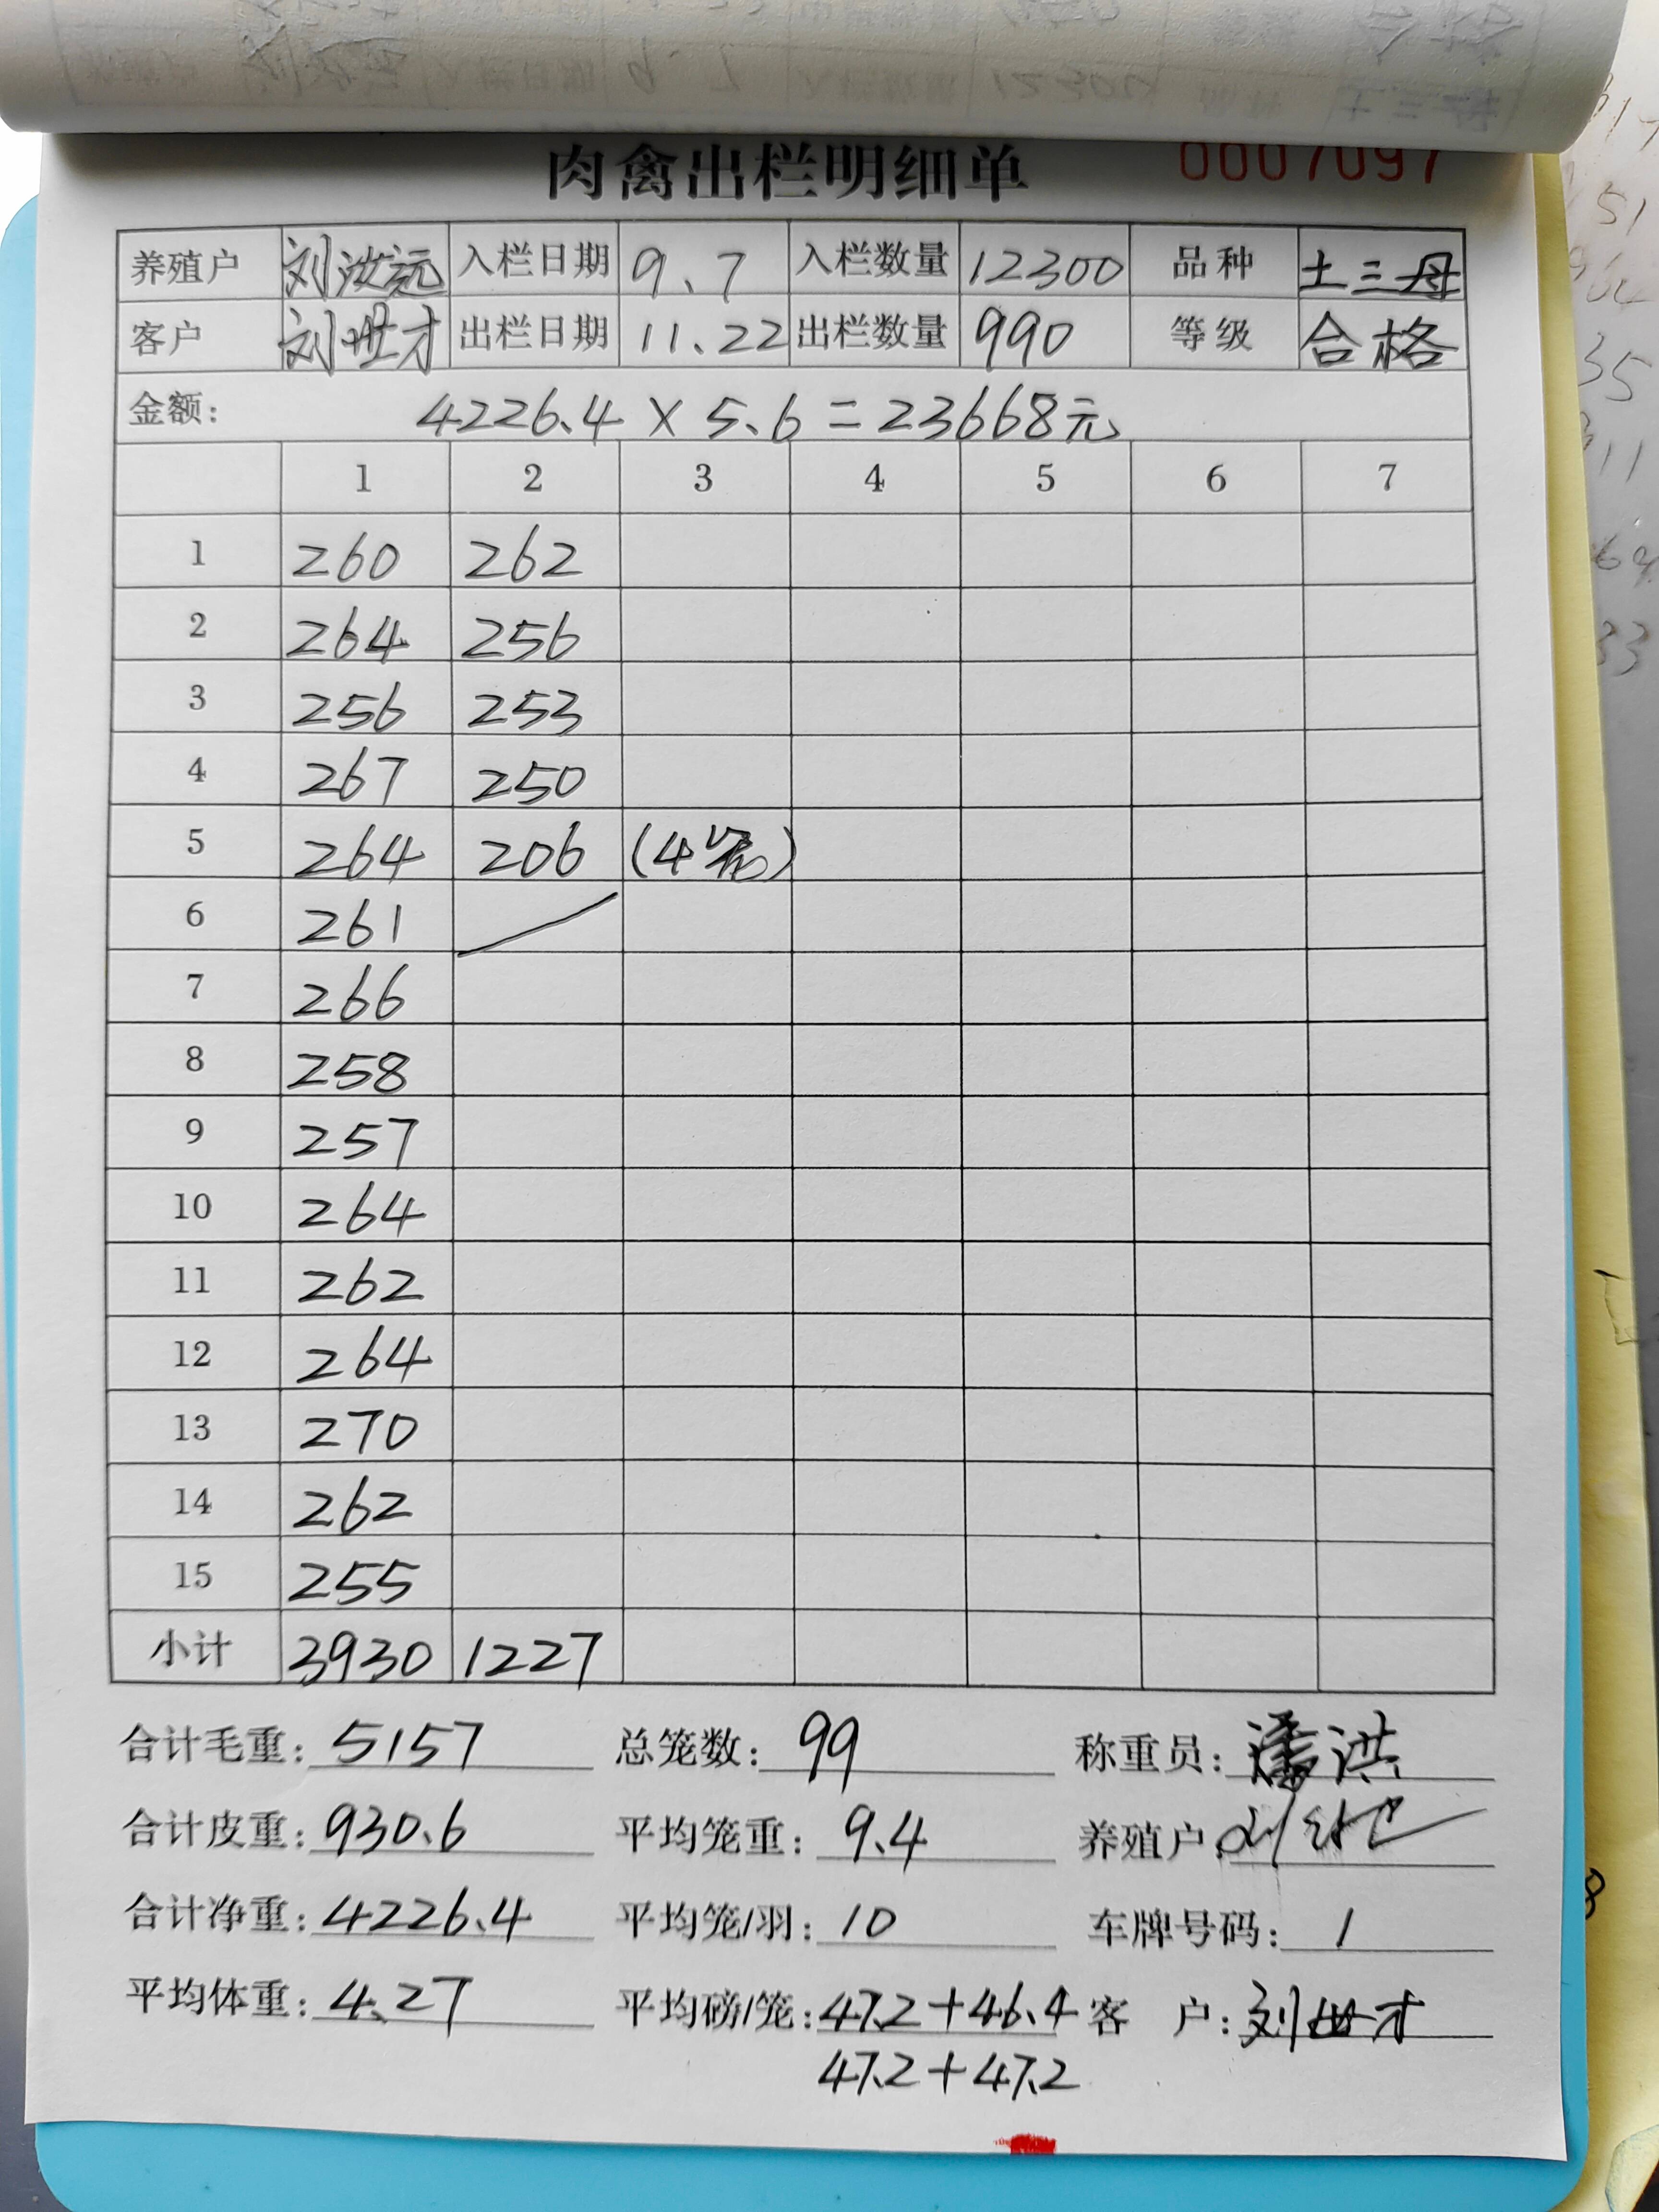 肉禽出栏明细单 0007097
养殖户 刘汝元 入栏日期 9.7 入栏数量 12300 品种 土三母
客户 刘世才 出栏日期 11.22 出栏数量 990 等级 合格
金额: 4226.4 × 5.6 = 23668元
1 2 3 4 5 6 7
1 260 262
2 264 256
3 256 253
4 267 250
5 264 206 (4笼)
6 261
7 266
8 258
9 257
10 264
11 262
12 264
13 270
14 262
15 255
小计 3930 1227
合计毛重: 5157 总笼数: 99 称重员: 潘洪
合计皮重: 930.6 平均笼重: 9.4 养殖户:
合计净重: 4226.4 平均笼/羽: 10 车牌号码: 1
平均体重: 4.27 平均磅/笼: 47.2+46.4 客 户: 刘世才
47.2+47.2